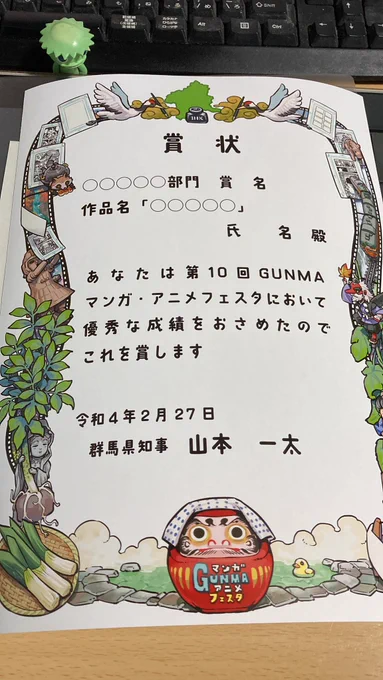 賞状
○○○○○部門 賞名
作品名「○○○○○」
氏名殿
あなたは第10回GUNMA
マンガ・アニメフェスタにおいて
優秀な成績をおさめたので
これを賞します
令和4年2月27日
群馬県知事 山本 一太
マンガ
GUNMA
アニメ
フェスタ